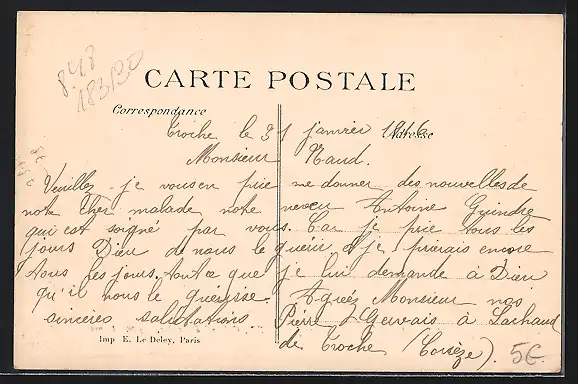 848
183/30
CARTE POSTALE
Correspondance
Adresse
Troche le 31 janvier 1916
Monsieur Naud.
Veuillez je vous en prie me donner des nouvelles de
note cher malade note neveu Antoine Guindre
qui est soigné par vous. Car je prie tous les
jours Dieu de nous le guérir et je prirais encore
tous les jours tout ce que je lui demande à Dieu
qu'il nous le guérisse. Agréez Monsieur nos
sincères salutations. Pierre Gervais à Lachaud
de Troche (Corrèze).
5€
Imp E. Le Deley, Paris